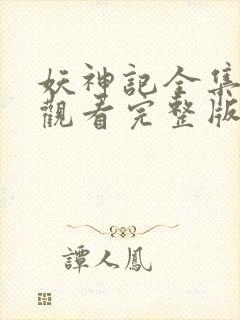 妖神記全集
觀看完整版
譚人鳳